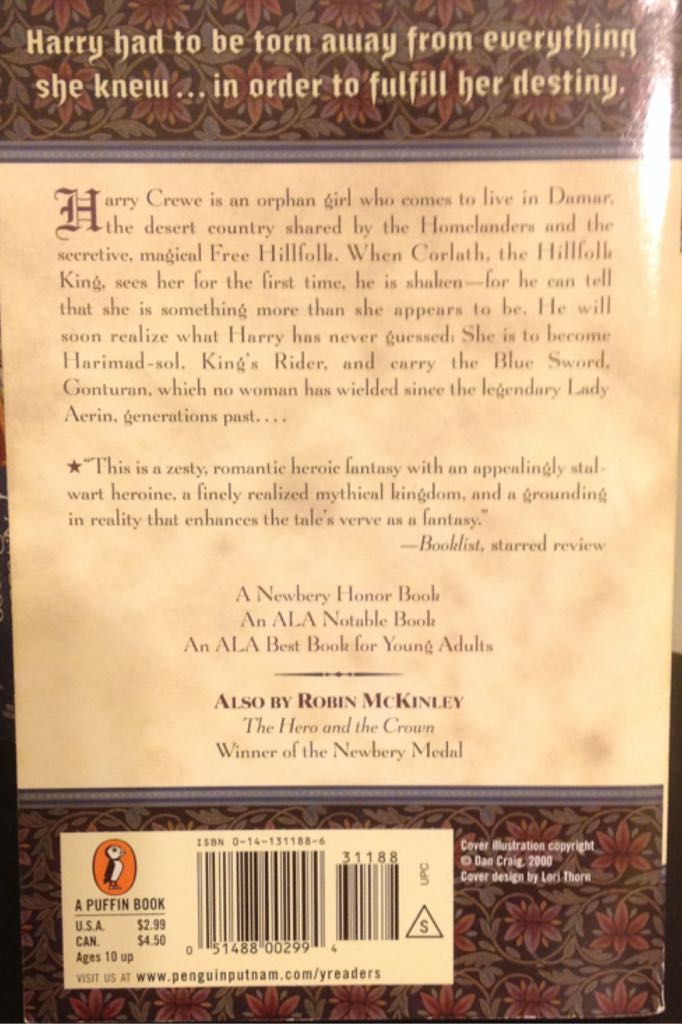 Harry had to be torn away from everything
she knew ... in order to fulfill her destiny.
Harry Crewe is an orphan girl who comes to live in Damar,
the desert country shared by the Homelanders and the
secretive, magical Free Hillfolk. When Corlath, the Hillfolk
King, sees her for the first time, he is shaken—for he can tell
that she is something more than she appears to be. He will
soon realize what Harry has never guessed: She is to become
Harimad-sol, King's Rider, and carry the Blue Sword,
Gonturan, which no woman has wielded since the legendary Lady
Aerin, generations past....
★"This is a zesty, romantic heroic fantasy with an appealingly stal-
wart heroine, a finely realized mythical kingdom, and a grounding
in reality that enhances the tale's verve as a fantasy."
—Booklist, starred review
A Newbery Honor Book
An ALA Notable Book
An ALA Best Book for Young Adults
ALSO BY ROBIN MCKINLEY
The Hero and the Crown
Winner of the Newbery Medal
A PUFFIN BOOK
U.S.A. $2.99
CAN. $4.50
Ages 10 up
VISIT US AT www.penguinputnam.com/yreaders
ISBN 0-14-131188-6
31188
0 51488 00299 4
UPC
S
Cover illustration copyright
© Dan Craig, 2000
Cover design by Lori Thorn